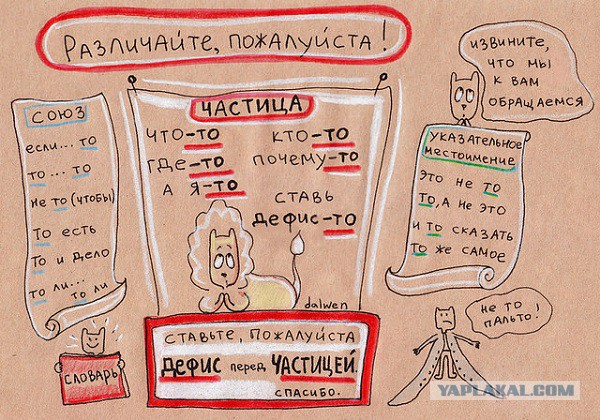 Различайте, пожалуйста!
СОЮЗ
если... то
то ... то
не то (чтобы)
то есть
то и дело
то ли... то ли
СЛОВАРЬ
ЧАСТИЦА
что-то кто-то
где-то почему-то
а я-то
ставь
дефис-то
dalwen
Ставьте, пожалуйста
дефис перед ЧАСТИЦЕЙ.
спасибо.
извините,
что мы
к вам
обращаемся
указательное
местоимение
это не то
то, а не это
и то сказать
то же самое
не то
пальто!
YAPLAKAL.COM